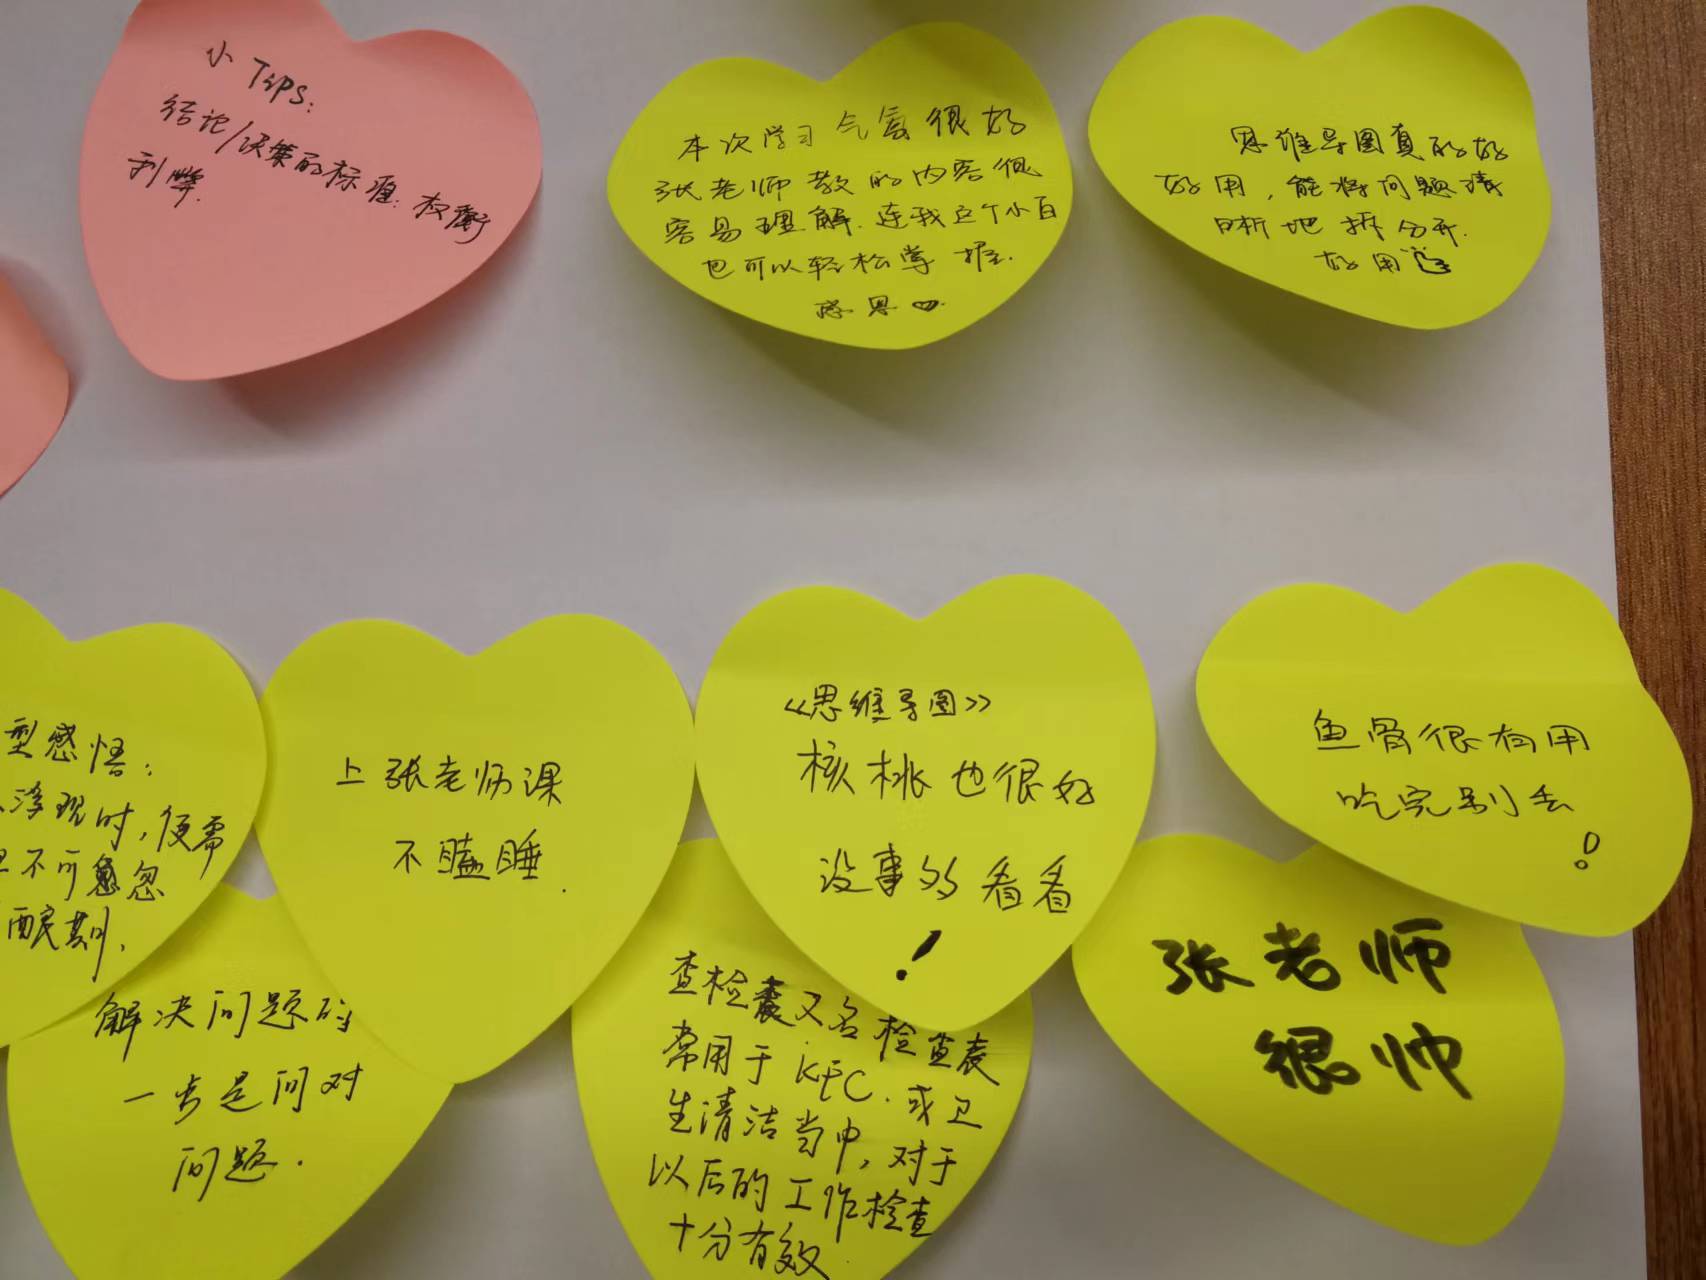 小 Tips:
结论/决策的标准:权衡
利弊.
本次学习气氛很好
张老师教的内容很
容易理解.连我这个小白
也可以轻松掌握.
感恩♡
思维导图真的好
好用,能将问题清
晰地拆分开.
好用
型感悟:
浮现时,便需
不可忽
期,
上张老师课
不瞌睡.
《思维导图》
核桃也很好
没事多看看
!
鱼骨很有用
吃完别丢
!
解决问题的
一步是问对
问题.
查检表又名检查表
常用于KFC.或卫
生清洁当中,对于
以后的工作检查
十分有效.
张老师
很帅